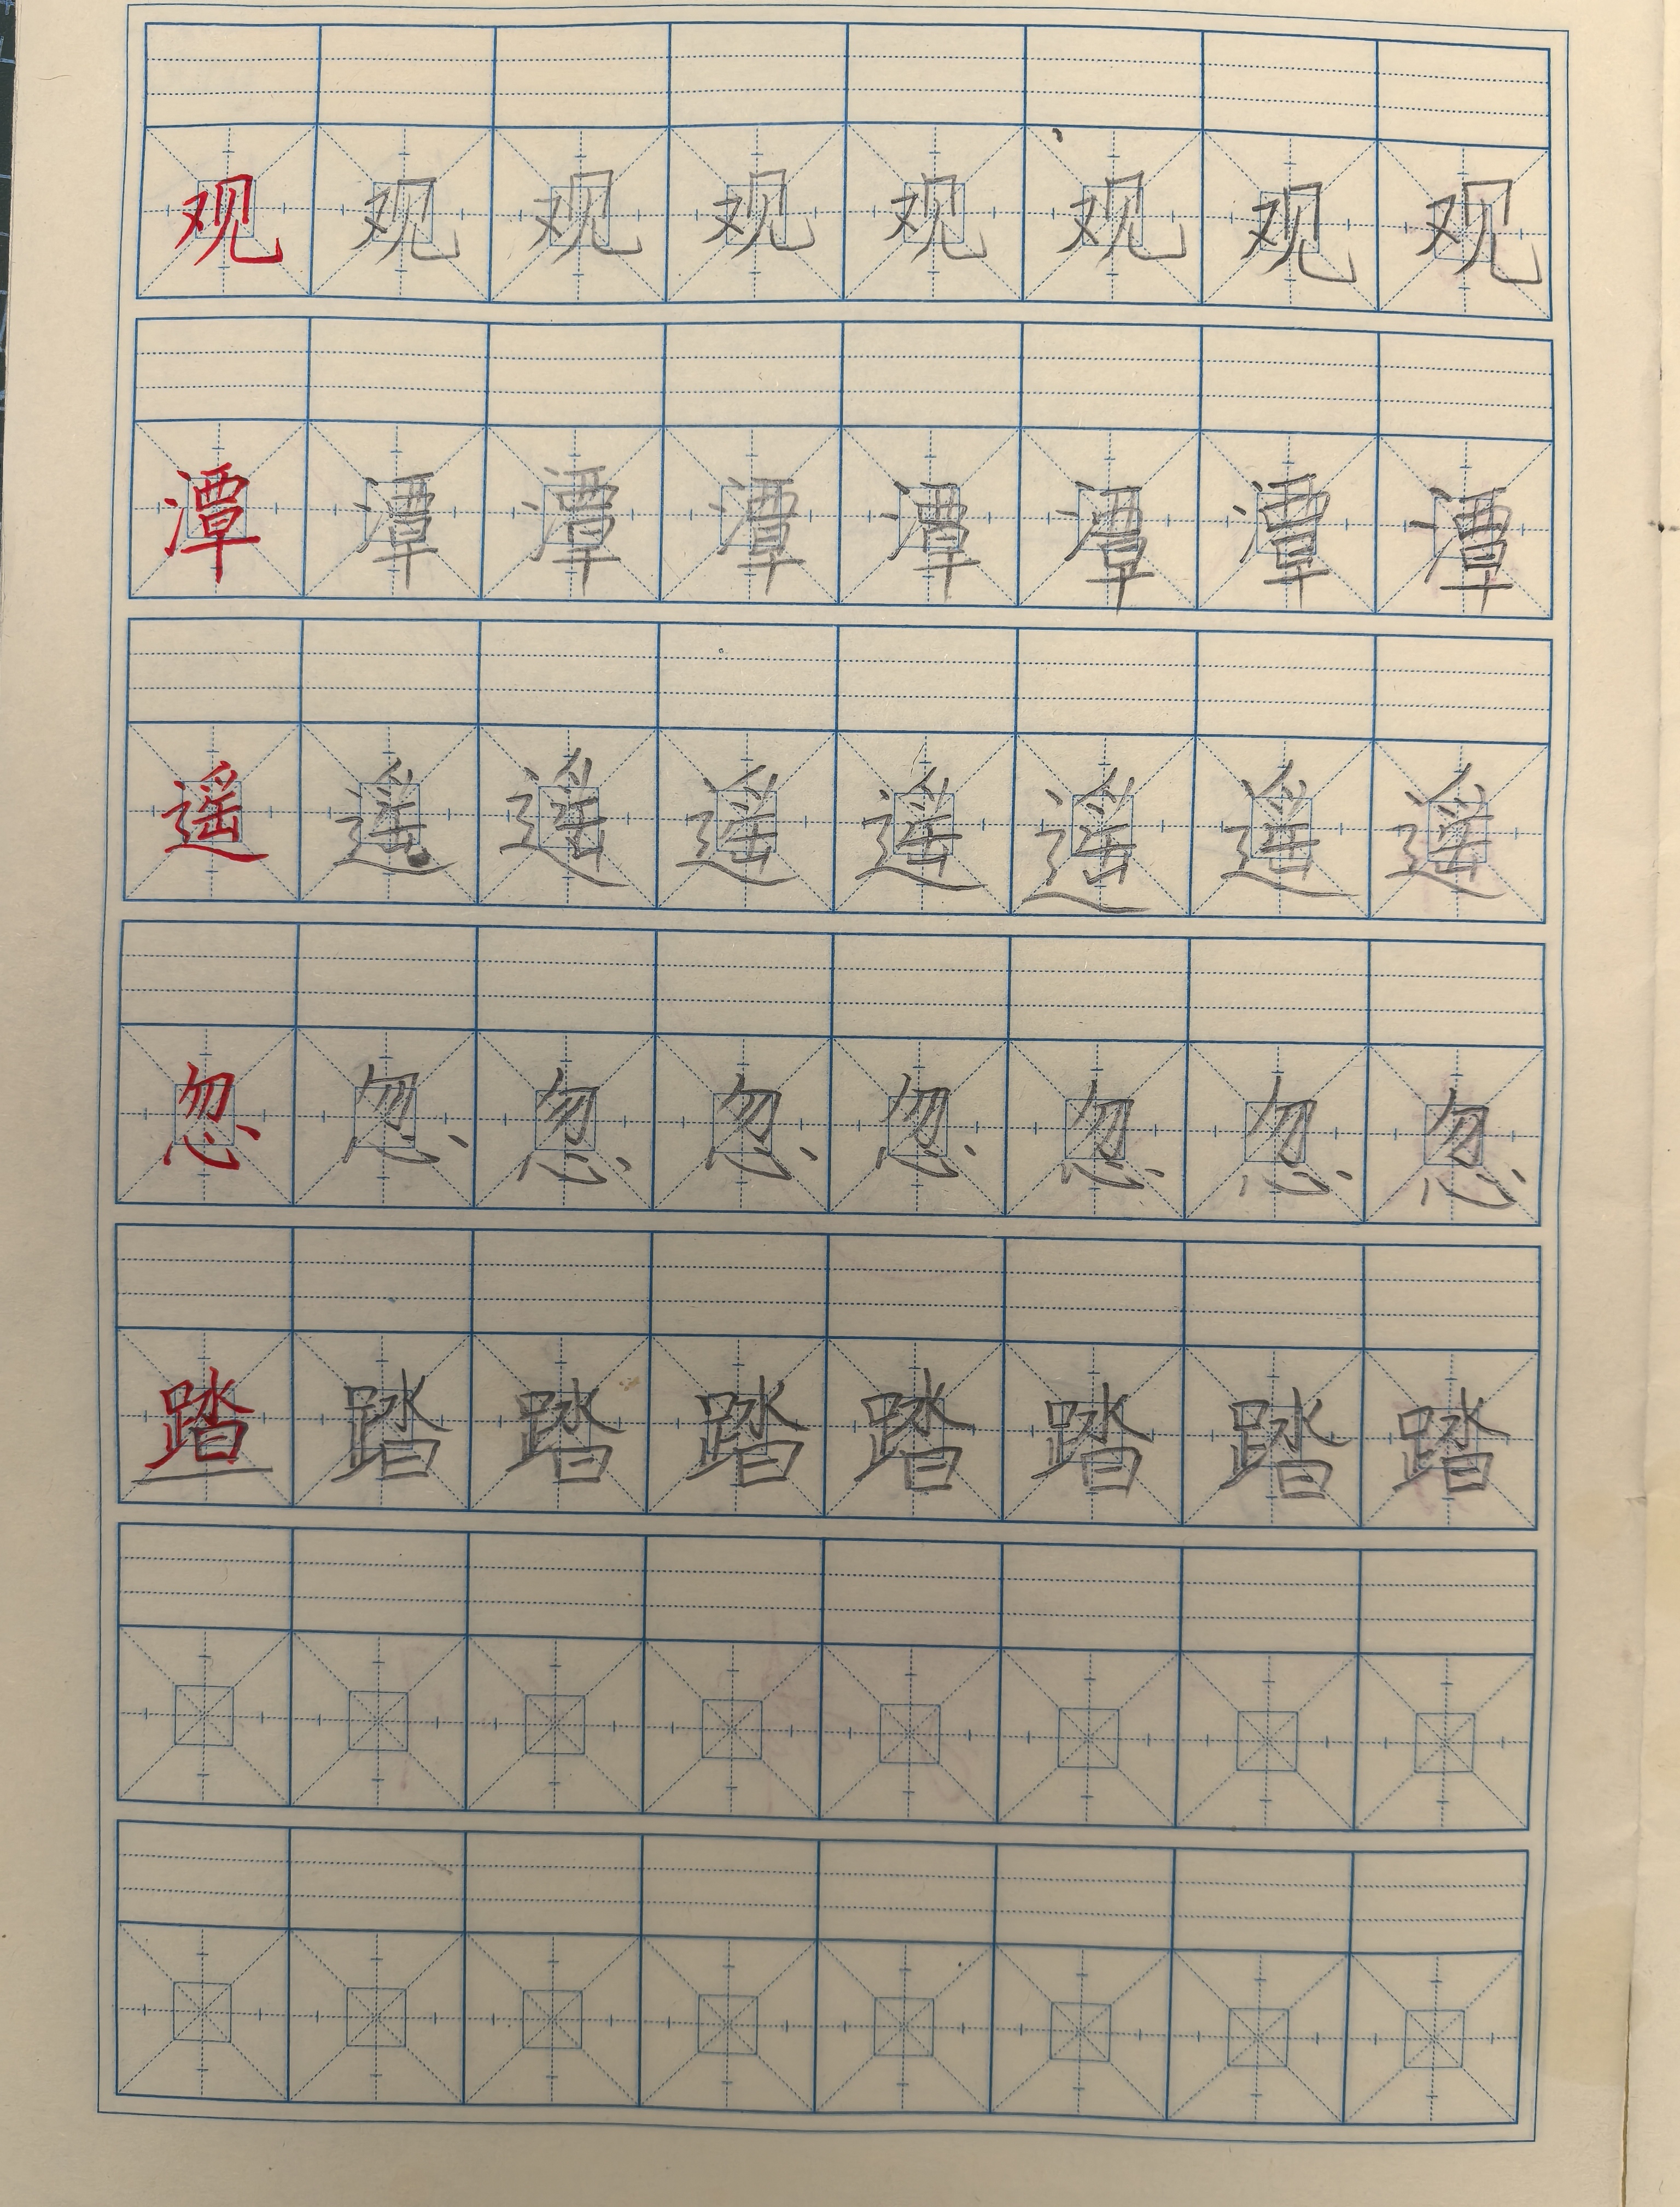 观观观观观观观观
潭潭潭潭潭潭潭潭
遥遥遥遥遥遥遥遥
忽忽忽忽忽忽忽忽
踏踏踏踏踏踏踏踏